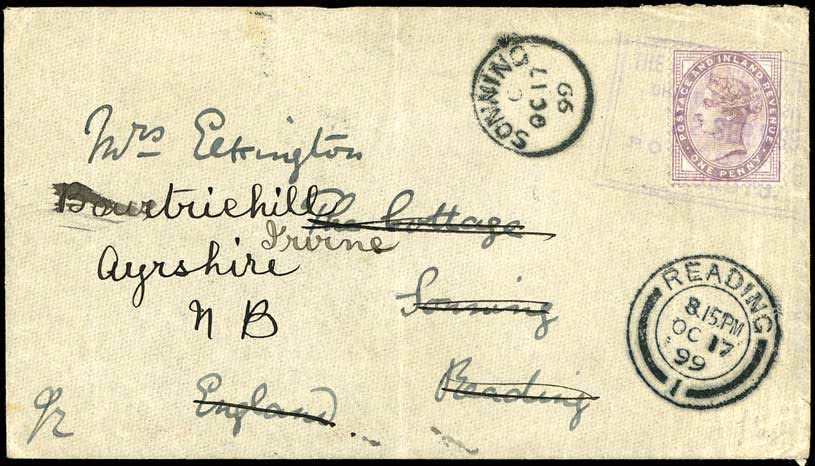 SONNING
C
OC 17
99
POSTAGE AND INLAND REVENUE
ONE PENNY
THE
Mrs Elkington
Bourtriehill
The Cottage
Irvine
Ayrshire
Sonning
N B
Reading
England
READING
8.15.PM
OC 17
99
1